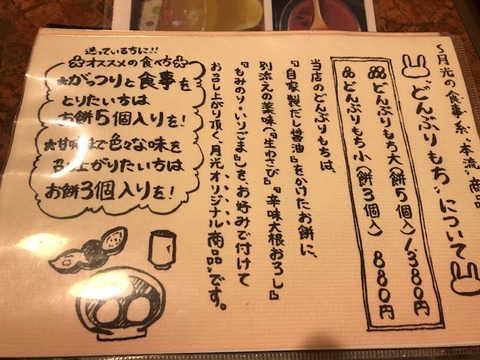 〜月光の食事系・本流〟商品
〝どんぶりもち〟について
どんぶりもち大(餅5個入) 1,380円
どんぶりもち小(餅3個入) 880円
当店のどんぶりもちは、
『自家製だし醤油』をかけたお餅に、
別添えの薬味へ『生わさび』『辛味大根おろし』
『もみのり・いりごま』を、お好みで付けて
お召し上がり頂く〝月光オリジナル商品〟です。
迷っている方に!!
オススメの食べ方
★がっつりと食事を
とりたい方は
お餅5個入りを!
★甘味まで色々な味を
召し上がりたい方は
お餅3個入りを!